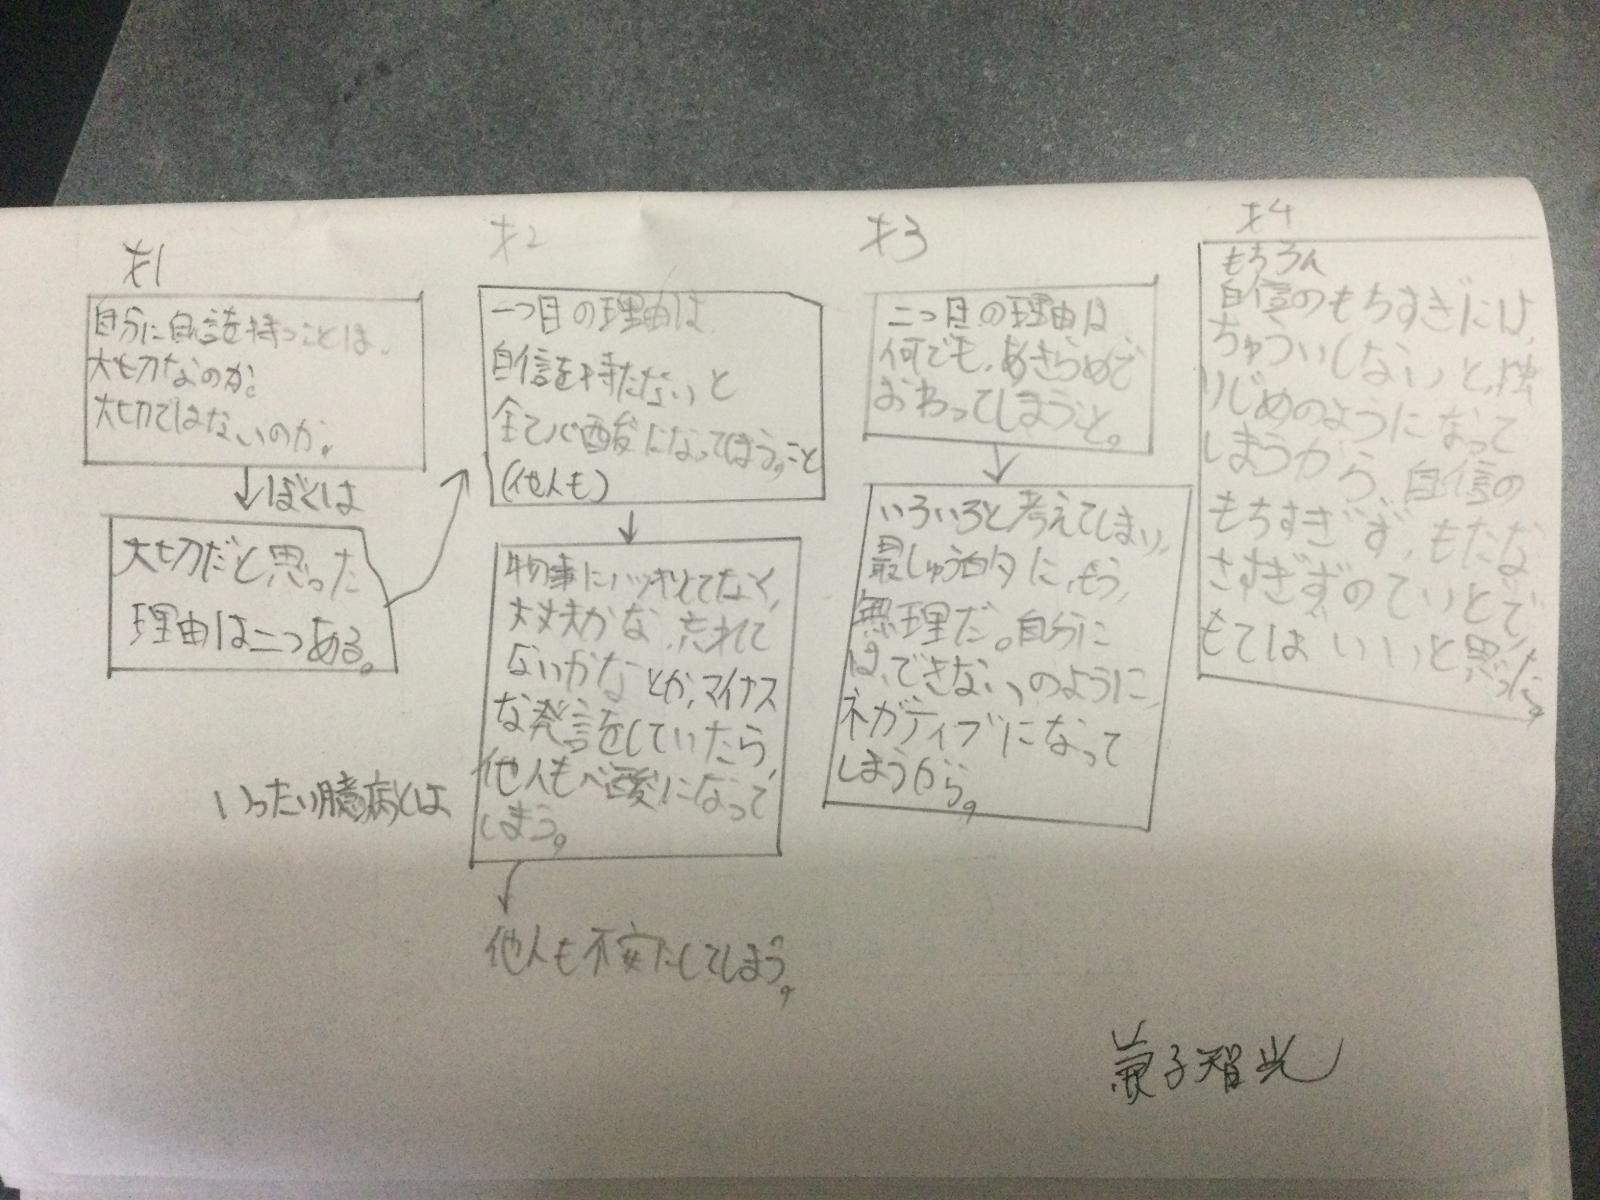 才1
自分に自信を持つことは、
大切なのか。
大切ではないのか。
ぼくは
大切だと思った
理由は二つある。
いったい臆病とは
才2
一つ目の理由は
自信を持たないと
全て心配になってしまう。こと
(他人も)
物事にハッキリとしてなく、
大丈夫かな、忘れて
ないかな とか、マイナス
な発言をしていたら、
他人も心配になって
しまう。
他人も不安にしてしまう。
才3
二つ目の理由は
何でも、あきらめで
おわってしまうこと。
いろいろと考えてしまい、
最しゅう的に、もう、
無理だ。自分に
は、できない、のように、
ネガティブになって
しまうから。
才4
もちろん
自信のもちすぎには、
ちゅういしないと、独
りじめのようになって
しまうから、自信の
もちすぎず、もたな
さすぎずのていとで、
もてばいいと思った。
兼子智光